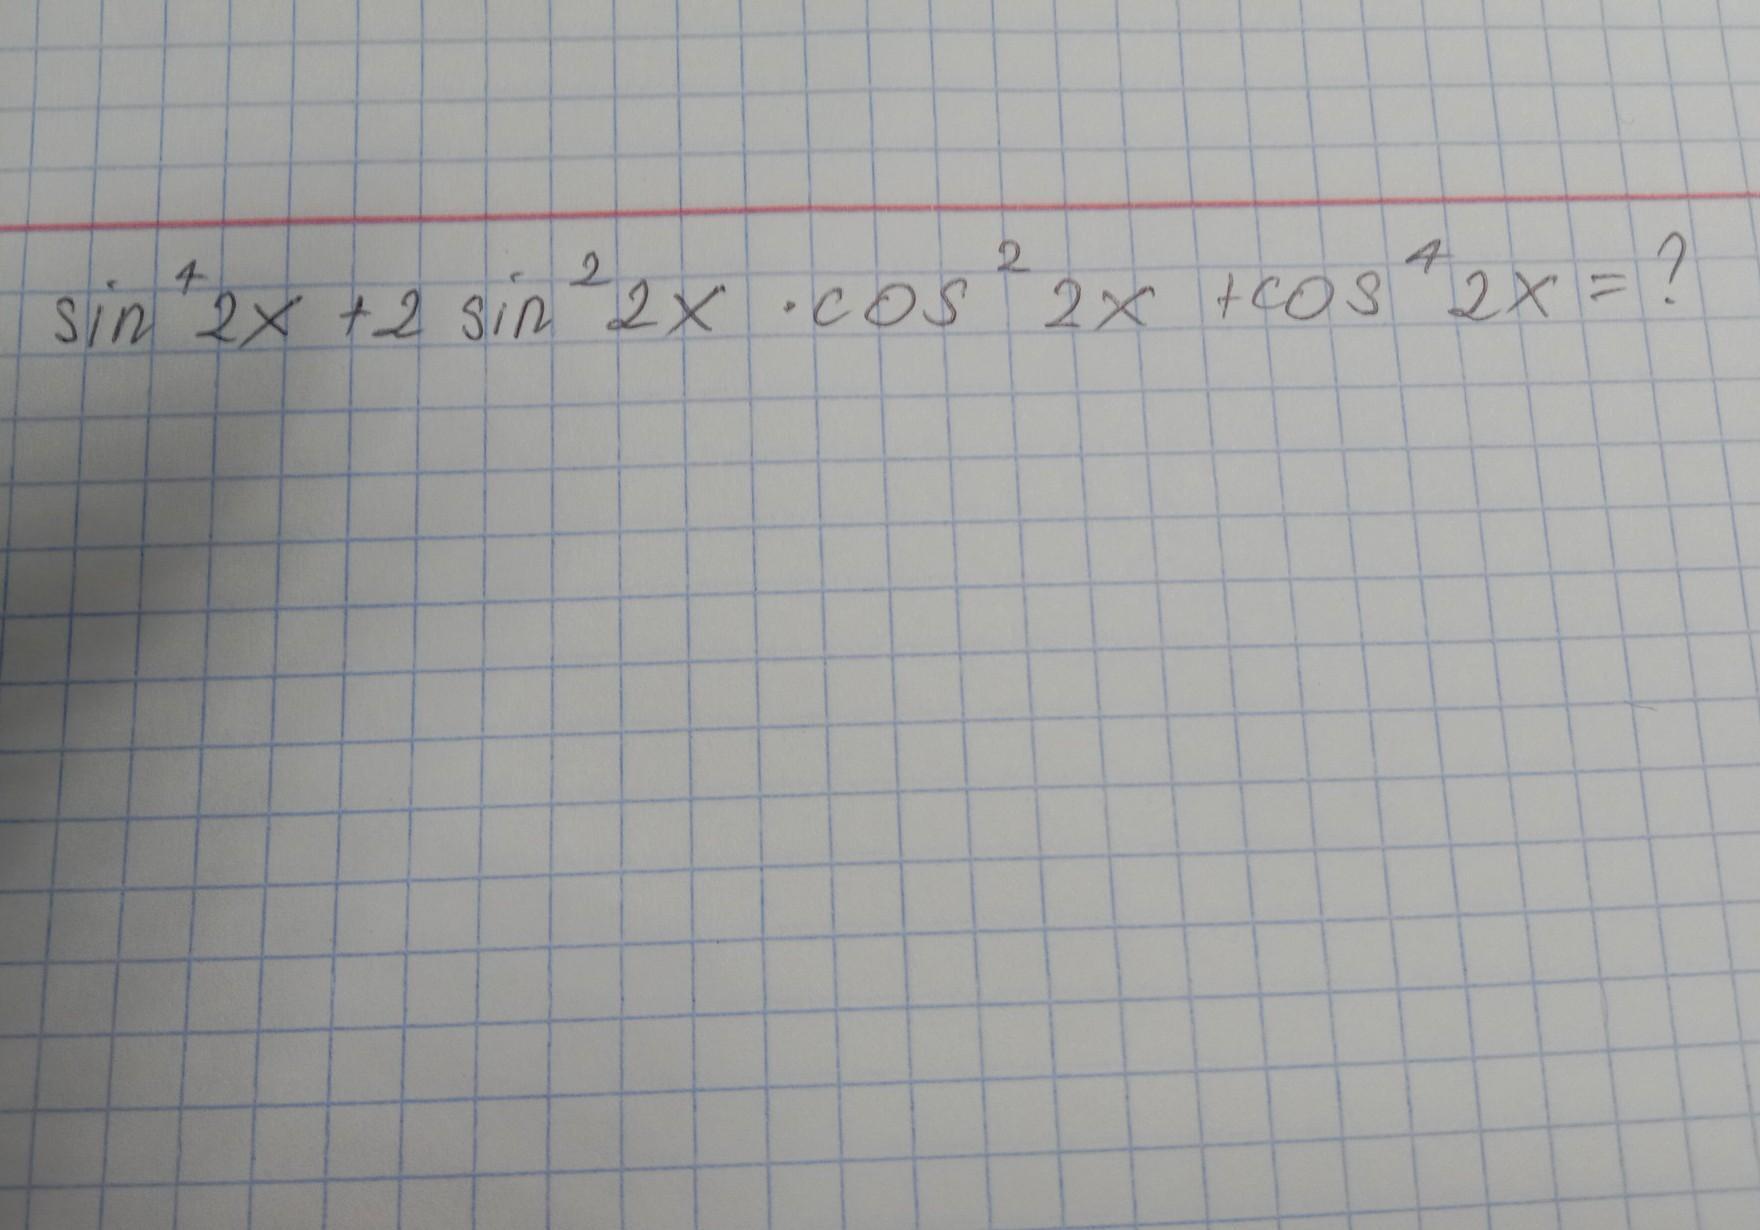 sin⁴2x + 2 sin²2x · cos²2x + cos⁴2x = ?